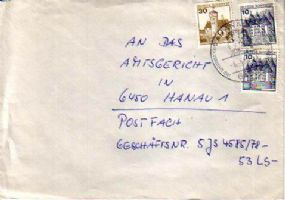 30
10
10
AN DAS
AMTSGERICHT
IN
6450 HANAU 1
POSTFACH
GESCHÄFTSNR. 5 JS 4585/78-
53 LS-